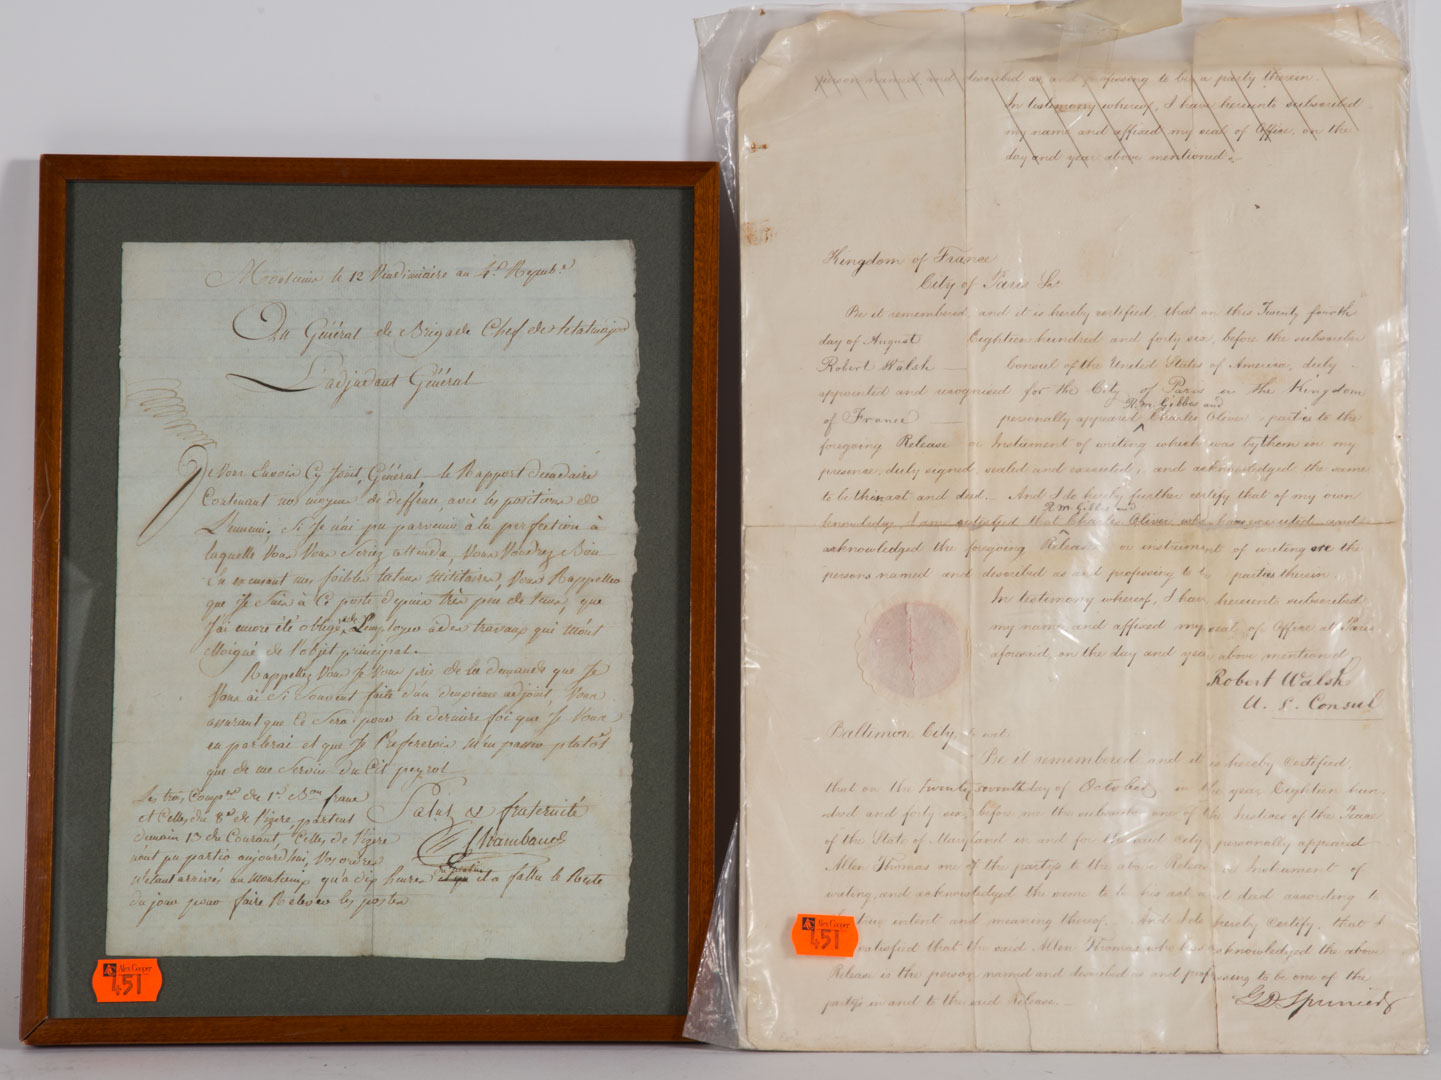 le 12 Vendimiaire an 4.e Repub.e
Au Général de Brigade Chef de letatmajor
L'adjudant Général
Je vous Envois Cy Joint, Général le Rapport Decadaire
Contenant nos moyens de deffense, avec les positions de
L'ennemi. Si Je n'ai pu parvenir à la perfection à
laquelle Vous Vous Seriez attendu, Vous Voudrez Bien
En excusant mes foibles talens militaires, Vous Rappeller
que Je Suis à Ce poste depuis très peu de tems, que
J'ai encore été obligé de L'employer à des travaux qui m'ont
Eloigné de l'objet principal.
Rappellez Vous Je Vous prie de la demande que Je
Vous ai Si Souvent faite d'un deuxieme adjoint, Vous
assurant que Ce Sera pour la derniere fois que Je Vous
en parlerai et que Je Prefererois m'en passer plutôt
que de me Servir du Cit peyrol
Salut & fraternité
Rambaud
Les trois Comp.es du 1.er B.on franc
et Celles du 8.e de l'izere partent
demain 13 du Courant, Celles de l'izere
n'ont pu partir aujourd'hui, Vos ordres
n'etant arrivés au qu'a dix heures il a fallu le Reste
du jour pour faire Relever les postes
Alex Cooper
451
person named and described as and professing to be a party therein.
In testimony whereof, I have hereunto subscribed
my name and affixed my seal of Office, on the
day and year above mentioned.
Kingdom of France
City of Paris Ss.
Be it remembered, and it is hereby certified, that on this Twenty fourth
day of August Eighteen hundred and forty six, before the subscriber
Robert Walsh Consul of the United States of America, duly
appointed and recognised for the City of Paris in the Kingdom
R. M. Gibbes and
of France personally appeared Charles Oliver, parties to the
foregoing Release or Instrument of writing which was by them in my
presence, duly signed, sealed and executed, and acknowledged the same
to be their act and deed. And I do hereby further certify that of my own
R M Gibbes and
knowledge I am satisfied that Charles Oliver who have executed and
acknowledged the foregoing Release or instrument of writing are the
persons named and described as and professing to be parties therein.
In testimony whereof, I have hereunto subscribed
my name and affixed my seal of Office at Paris
aforesaid, on the day and year above mentioned
Robert Walsh
U. S. Consul
Baltimore City, to wit:
Be it remembered and it is hereby certified,
that on the Twenty seventh day of October in the year Eighteen hun-
dred and forty six, before me the subscriber one of the Justices of the Peace
of the State of Maryland in and for the said City, personally appeared
Allen Thomas one of the partys to the above Release or Instrument of
writing, and acknowledged the same to be his act and deed according to
the true intent and meaning thereof. And I do hereby certify, that I
am satisfied that the said Allen Thomas, who has acknowledged the above
Release is the person named and described as and professing to be one of the
party's in and to the said Release.
Alex Cooper
451